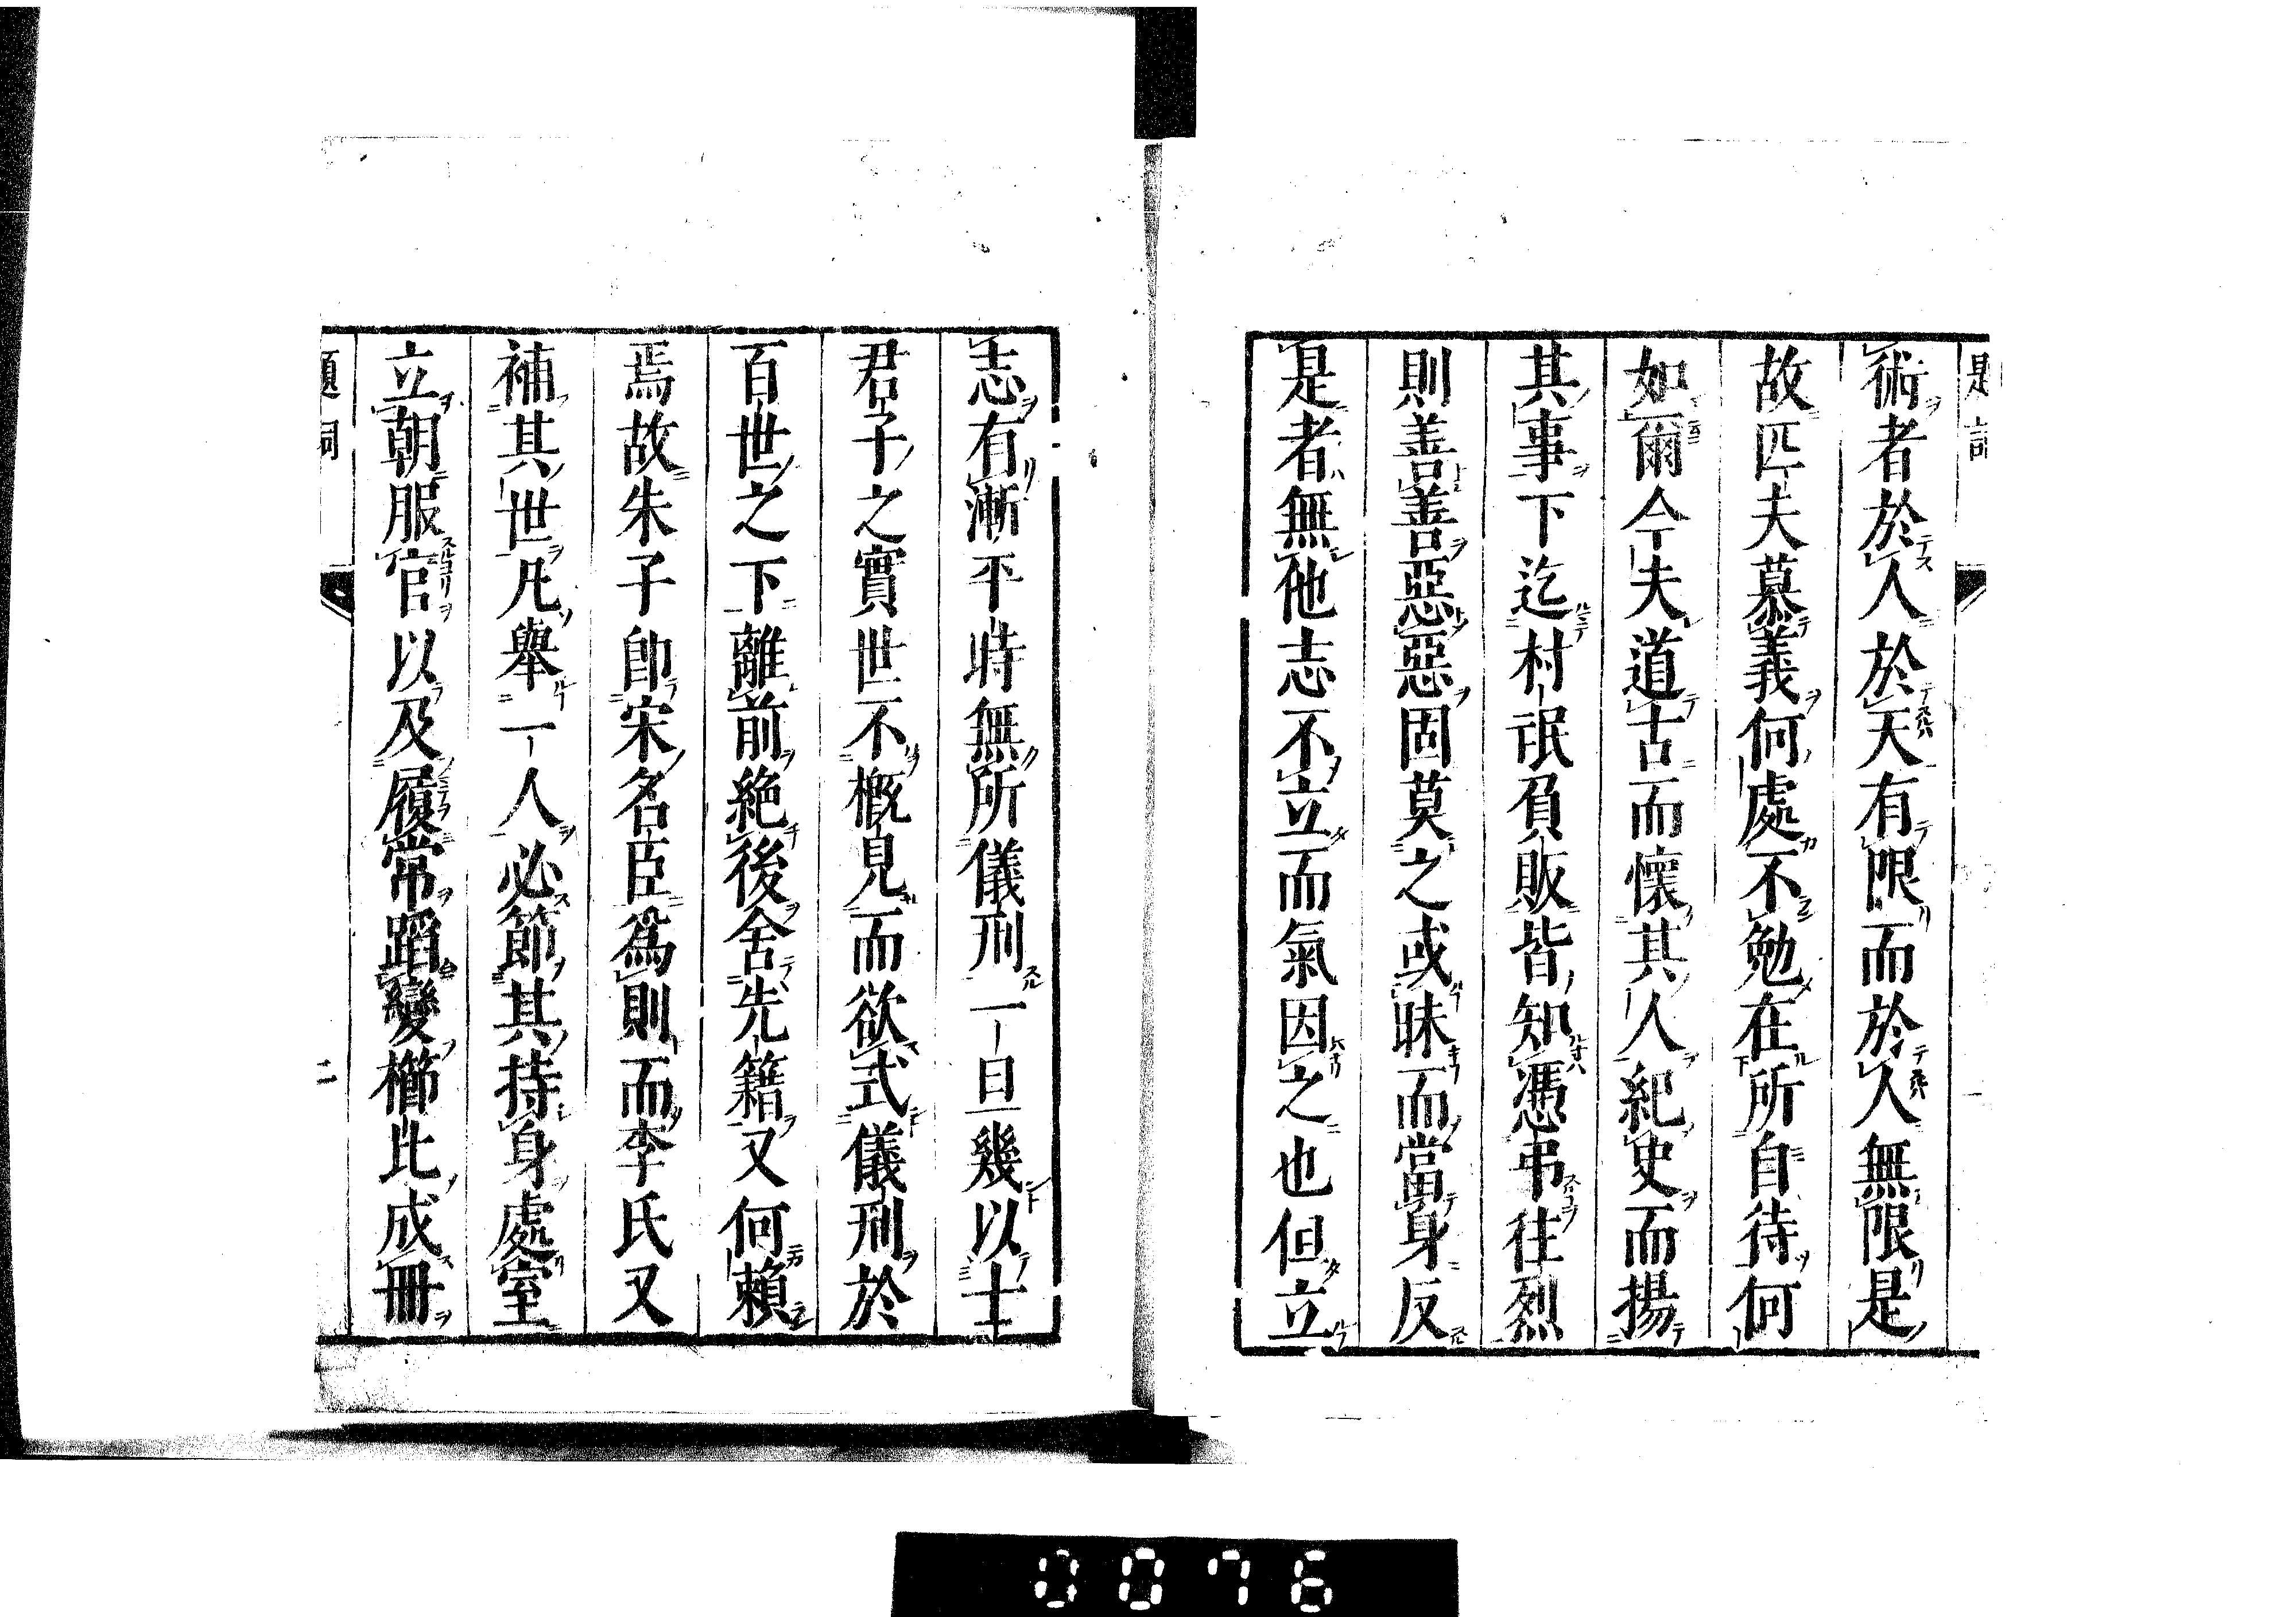 術者於人於天有限而於人無限是
故匹夫慕義何處不勉在所自待何
如爾今夫道古而懷其人紀史而揚
其事下迄村氓負販皆知憑弔往烈
則善善惡惡固莫之或昧而當身反
是者無他志不立而氣因之也但立
志有漸平時無所儀刑一旦幾以士
君子之實世不概見而欲式儀刑於
百世之下離前絶後舍先籍又何賴
焉故朱子卽宋名臣爲則而李氏又
補其世凡舉一人必節其持身處室
立朝服官以及履常蹈變櫛比成冊
題詞
二
0076